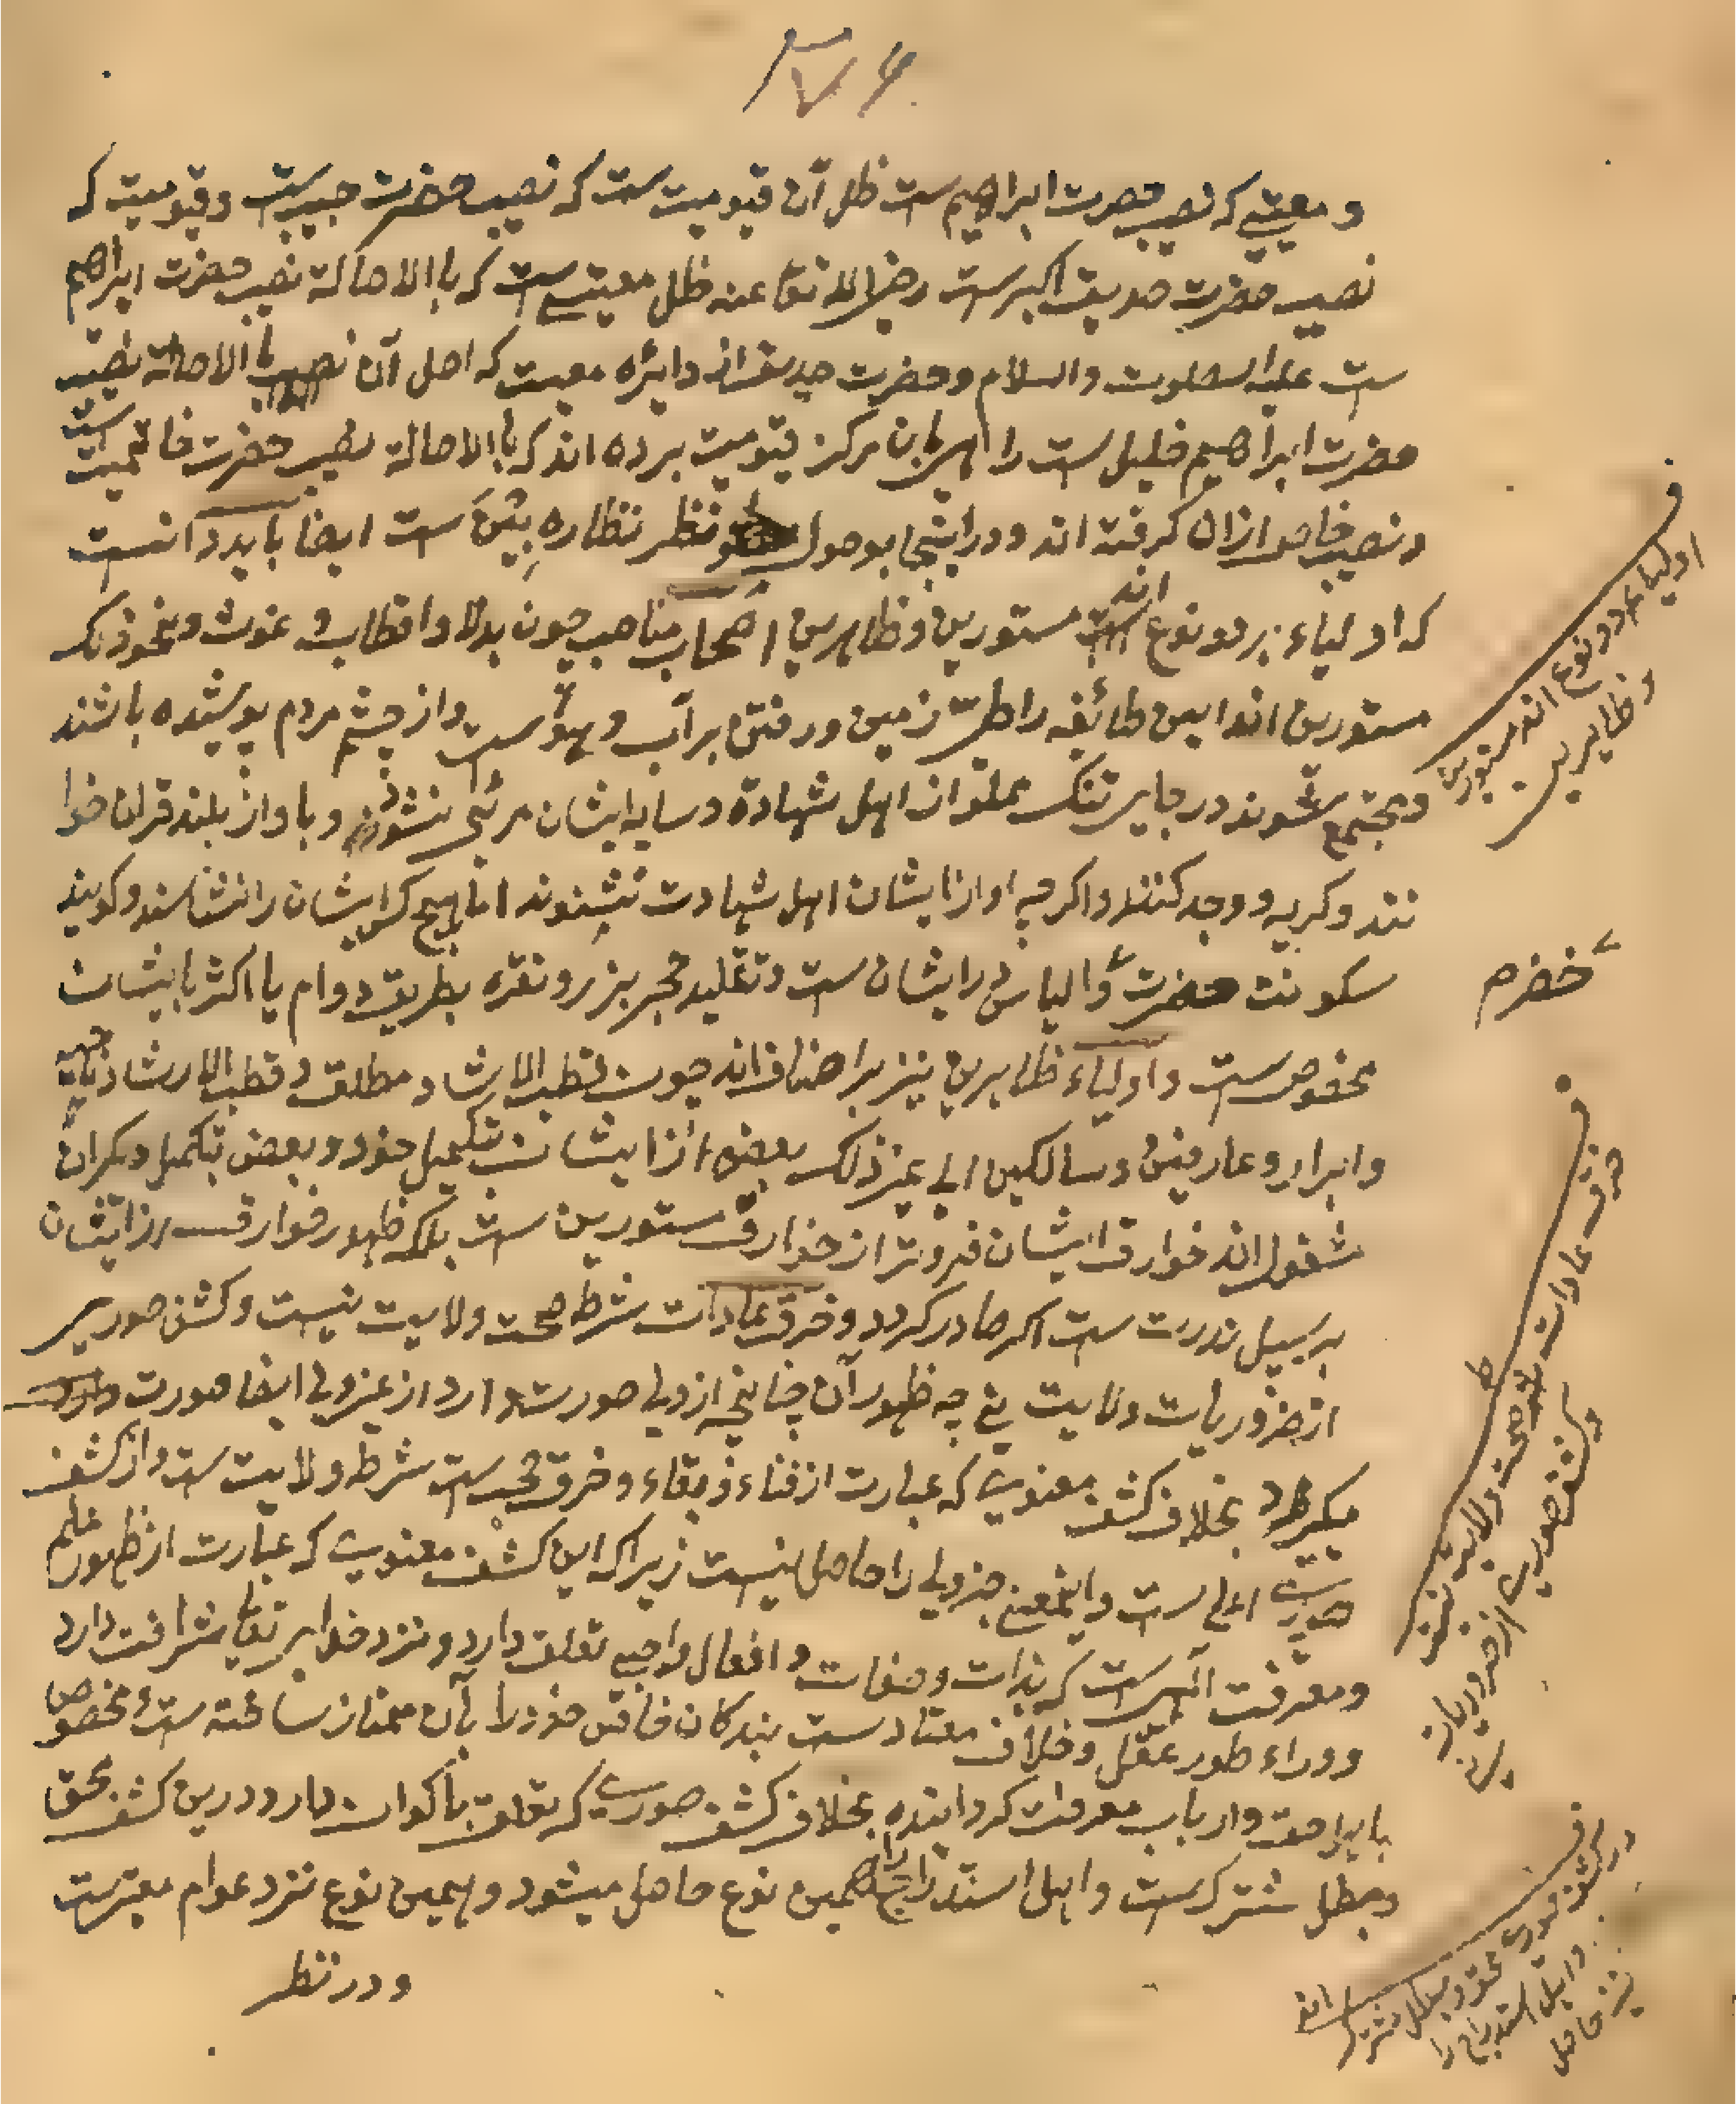 و معیتے کہ نصیب حضرت ابراهیم ست ظل آن قیومیت ست کہ نصیب حضرت حبیب ست و قیومیت کہ
نصیب حضرت صدیق اکبر ست رضی الله تعا عنہ ظل معیتے ست کہ باالاصالة نصیب حضرت ابراهیم
ست علیہ الصلوت والسلام و حضرت صدیق از دایرہ معیت کہ اصل آن باالاصالة نصیب
حضرت ابراهیم خلیل ست را بآن مرکز قیومیت برده اند کہ باالاصالة نصیب حضرت خاتمیت ست
و نصیب خاص ازان گرفتہ اند و درانیجا بوصول نظر نظارہ بیش ست ایضا باید دانست
کہ اولیاء بر دو نوع اند مستورین و ظاہرین اصحاب مناصب چون بدلا و اقطاب و غوث و نحو ذلک
مستورین اند این طائفہ را طی زمین و رفتن بر آب و ہوا ست و از چشم مردم پوشیدہ باشند
و مجتمع شوند در جاے تنگ مملو از اہل شہادة و سایہ ایشان مرئی نشود و باواز بلند قران خوا
نند و کریہ و وجد کنند و اکرچہ اواز ایشان اہل شہادت نشنوند اما ہیچ کس ایشان را نشناسند و کویند
سکونت حضرت خضر م و الیاس در ایشان ست و تقلید حجر بزر و نقرہ بطریق دوام یا اکثر بایشان
مخصوص ست و اولیاء ظاہرین نیز بر اصناف اند چون قطب الارشاد مطلق و قطب الارشاد
و ابرار و عارفین و سالکین الی غیر ذلک بعضے از ایشان بتکمیل خود و بعض بتکمیل دیکران
مشغول اند خوارق ایشان فروتر از خوارق مستورین ست بلکہ ظہور خوارق از ایشان
بر سبیل ندرت ست اکر صادر کردد و خرق عادات شرط صحت ولایت نیست و کشف صورے
از ضروریات ولایت نے چہ ظہور آن چنانچہ از ولی صورت دارد از غیر ولی ایضا صورت
میکیرد بخلاف کشف معنوی کہ عبارت از فناء و بقاء و خرق حجب ست شرط ولایت ست و از کشف
صورے اعلی ست و اینمعنے جز ولی را حاصل نیست زیراکہ این کشف معنوی کہ عبارت از ظہور علم
و معرفت الہی ست کہ بذات و صفات و افعال واجبے تعلق دارد و نزد خداے تعا شرافت دارد
و وراء طور عقل و خلاف معتاد ست بندکان خاص خود را بآن ممتاز ساختہ ست و مخصوص
با اہل حق و ارباب معرفت کردانیده بخلاف کشف صورے کہ تعلق باکوان دارد و درین کشف محق
و مبطل مشترک ست و اہل استدراج را ہمین نوع حاصل میشود و ہمین نوع نزد عوام معتبر ست
و در نظر
اولیاء دو نوع اند مستورین
و ظاہرین
خضر م
خرق عادات شرط صحت ولایت نیست
و کشف صورے از ضروریات
در کشف صورے محق و مبطل مشترک اند
و اہل استدراج را
نیز حاصل